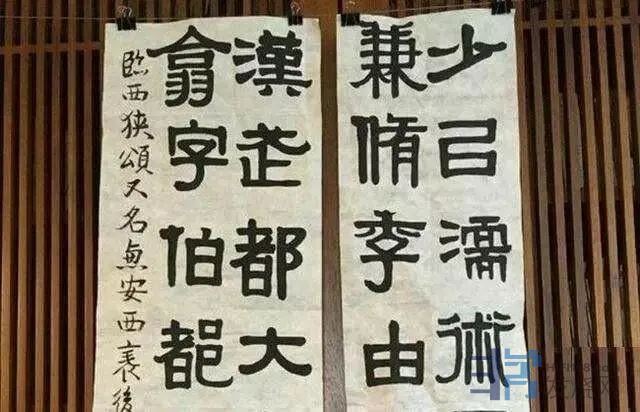 少㠯濡術
兼脩李由
漢武都大
翕字伯都
臨西狹頌又名惠安西表後